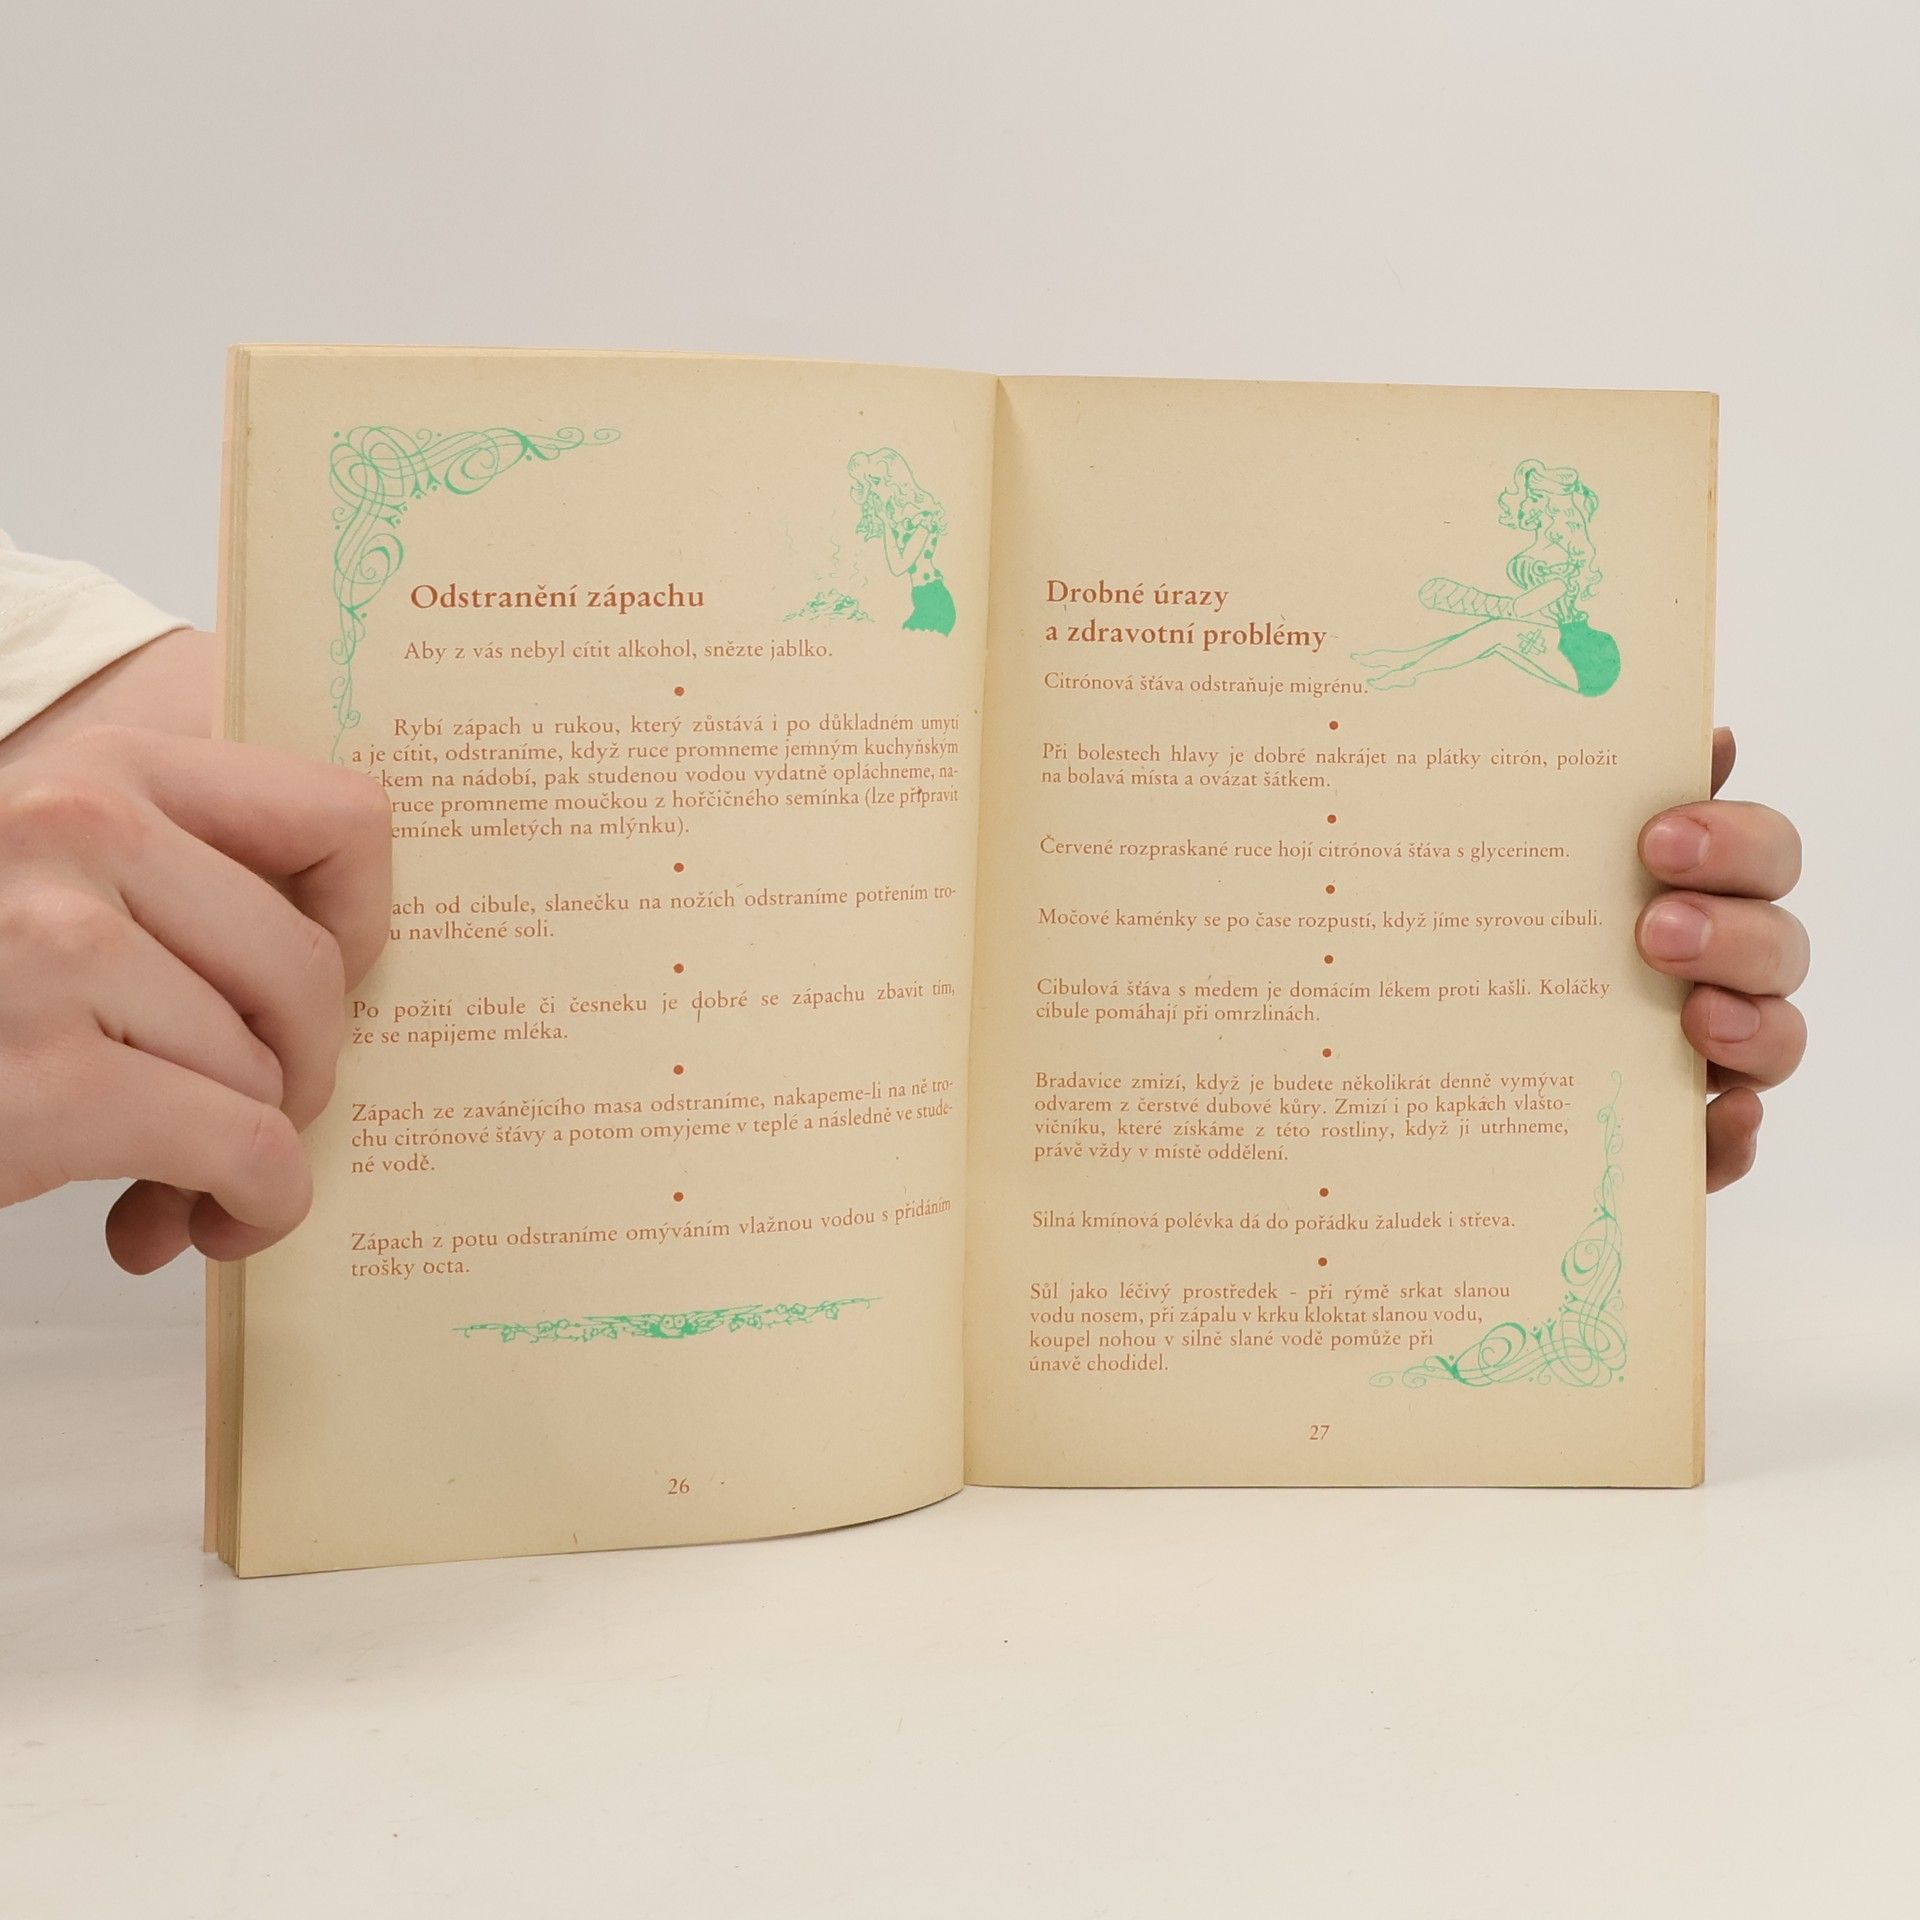 Odstranění zápachu
Aby z vás nebyl cítit alkohol, snězte jablko.
Rybí zápach u rukou, který zůstává i po důkladném umytí
a je cítit, odstraníme, když ruce promneme jemným kuchyňským
na nádobí, pak studenou vodou vydatně opláchneme, na-
ruce promneme moučkou z hořčičného semínka (lze připravit
umletých na mlýnku).
od cibule, slanečku na nožích odstraníme potřením tro-
navlhčené soli.
Po požití cibule či česneku je dobré se zápachu zbavit tím,
že se napijeme mléka.
Zápach ze zavánějícího masa odstraníme, nakapeme-li na ně tro-
chu citrónové šťávy a potom omyjeme v teplé a následně ve stude-
né vodě.
Zápach z potu odstraníme omýváním vlažnou vodou s přidáním
trošky octa.
26
Drobné úrazy
a zdravotní problémy
Citrónová šťáva odstraňuje migrénu.
Při bolestech hlavy je dobré nakrájet na plátky citrón, položit
na bolavá místa a ovázat šátkem.
Červené rozpraskané ruce hojí citrónová šťáva s glycerinem.
Močové kaménky se po čase rozpustí, když jíme syrovou cibuli.
Cibulová šťáva s medem je domácím lékem proti kašli. Koláčky
cibule pomáhají při omrzlinách.
Bradavice zmizí, když je budete několikrát denně vymývat
odvarem z čerstvé dubové kůry. Zmizí i po kapkách vlašto-
vičníku, které získáme z této rostliny, když ji utrhneme,
právě vždy v místě oddělení.
Silná kmínová polévka dá do pořádku žaludek i střeva.
Sůl jako léčivý prostředek - při rýmě srkat slanou
vodu nosem, při zápalu v krku kloktat slanou vodu,
koupel nohou v silně slané vodě pomůže při
únavě chodidel.
27